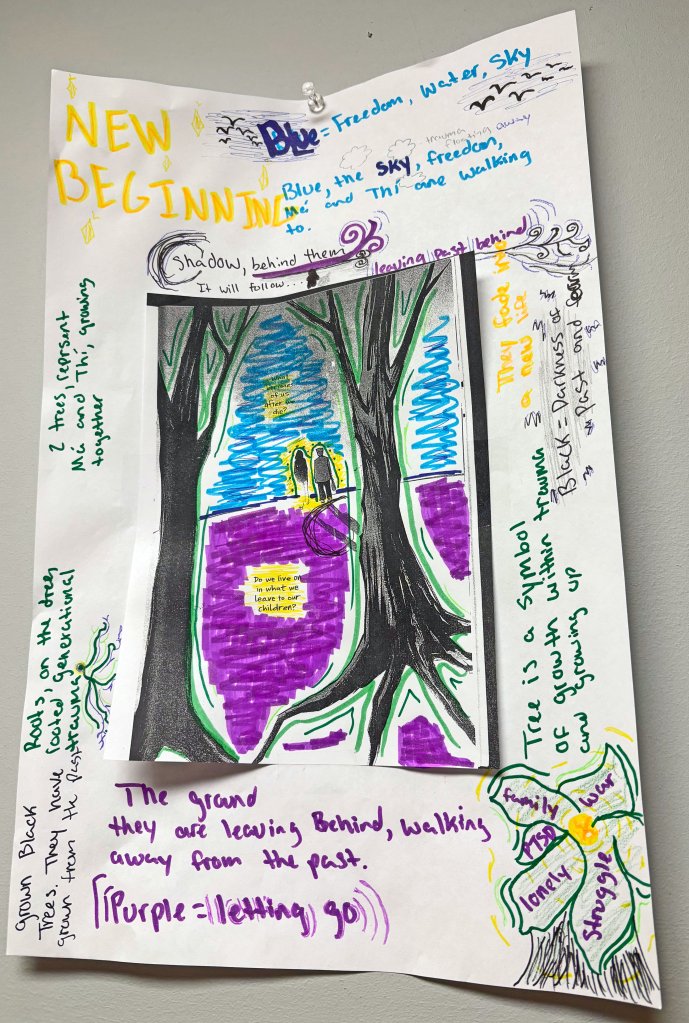 NEW
BEGINNING
Blue = Freedom, Water, Sky
- trauma
floating away
Blue, the sky, freedom,
Má and Thí are walking
to.
Shadow, behind them
It will follow...
leaving past behind
They fade into
a new life
Black = Darkness of
Past and
2 trees reprsent
Má and Thí, growing
together
of us
after we
die?
Do we live on
in what we
leave to our
children?
Tree is a symbol
of growth within trauma
and growing up
Roots, on the trees
rooted generational
trauma
grown Black
Trees. They have
grown from the past
The ground
they are leaving Behind, walking
away from the past.
Purple = letting go
family
war
lonely
struggle